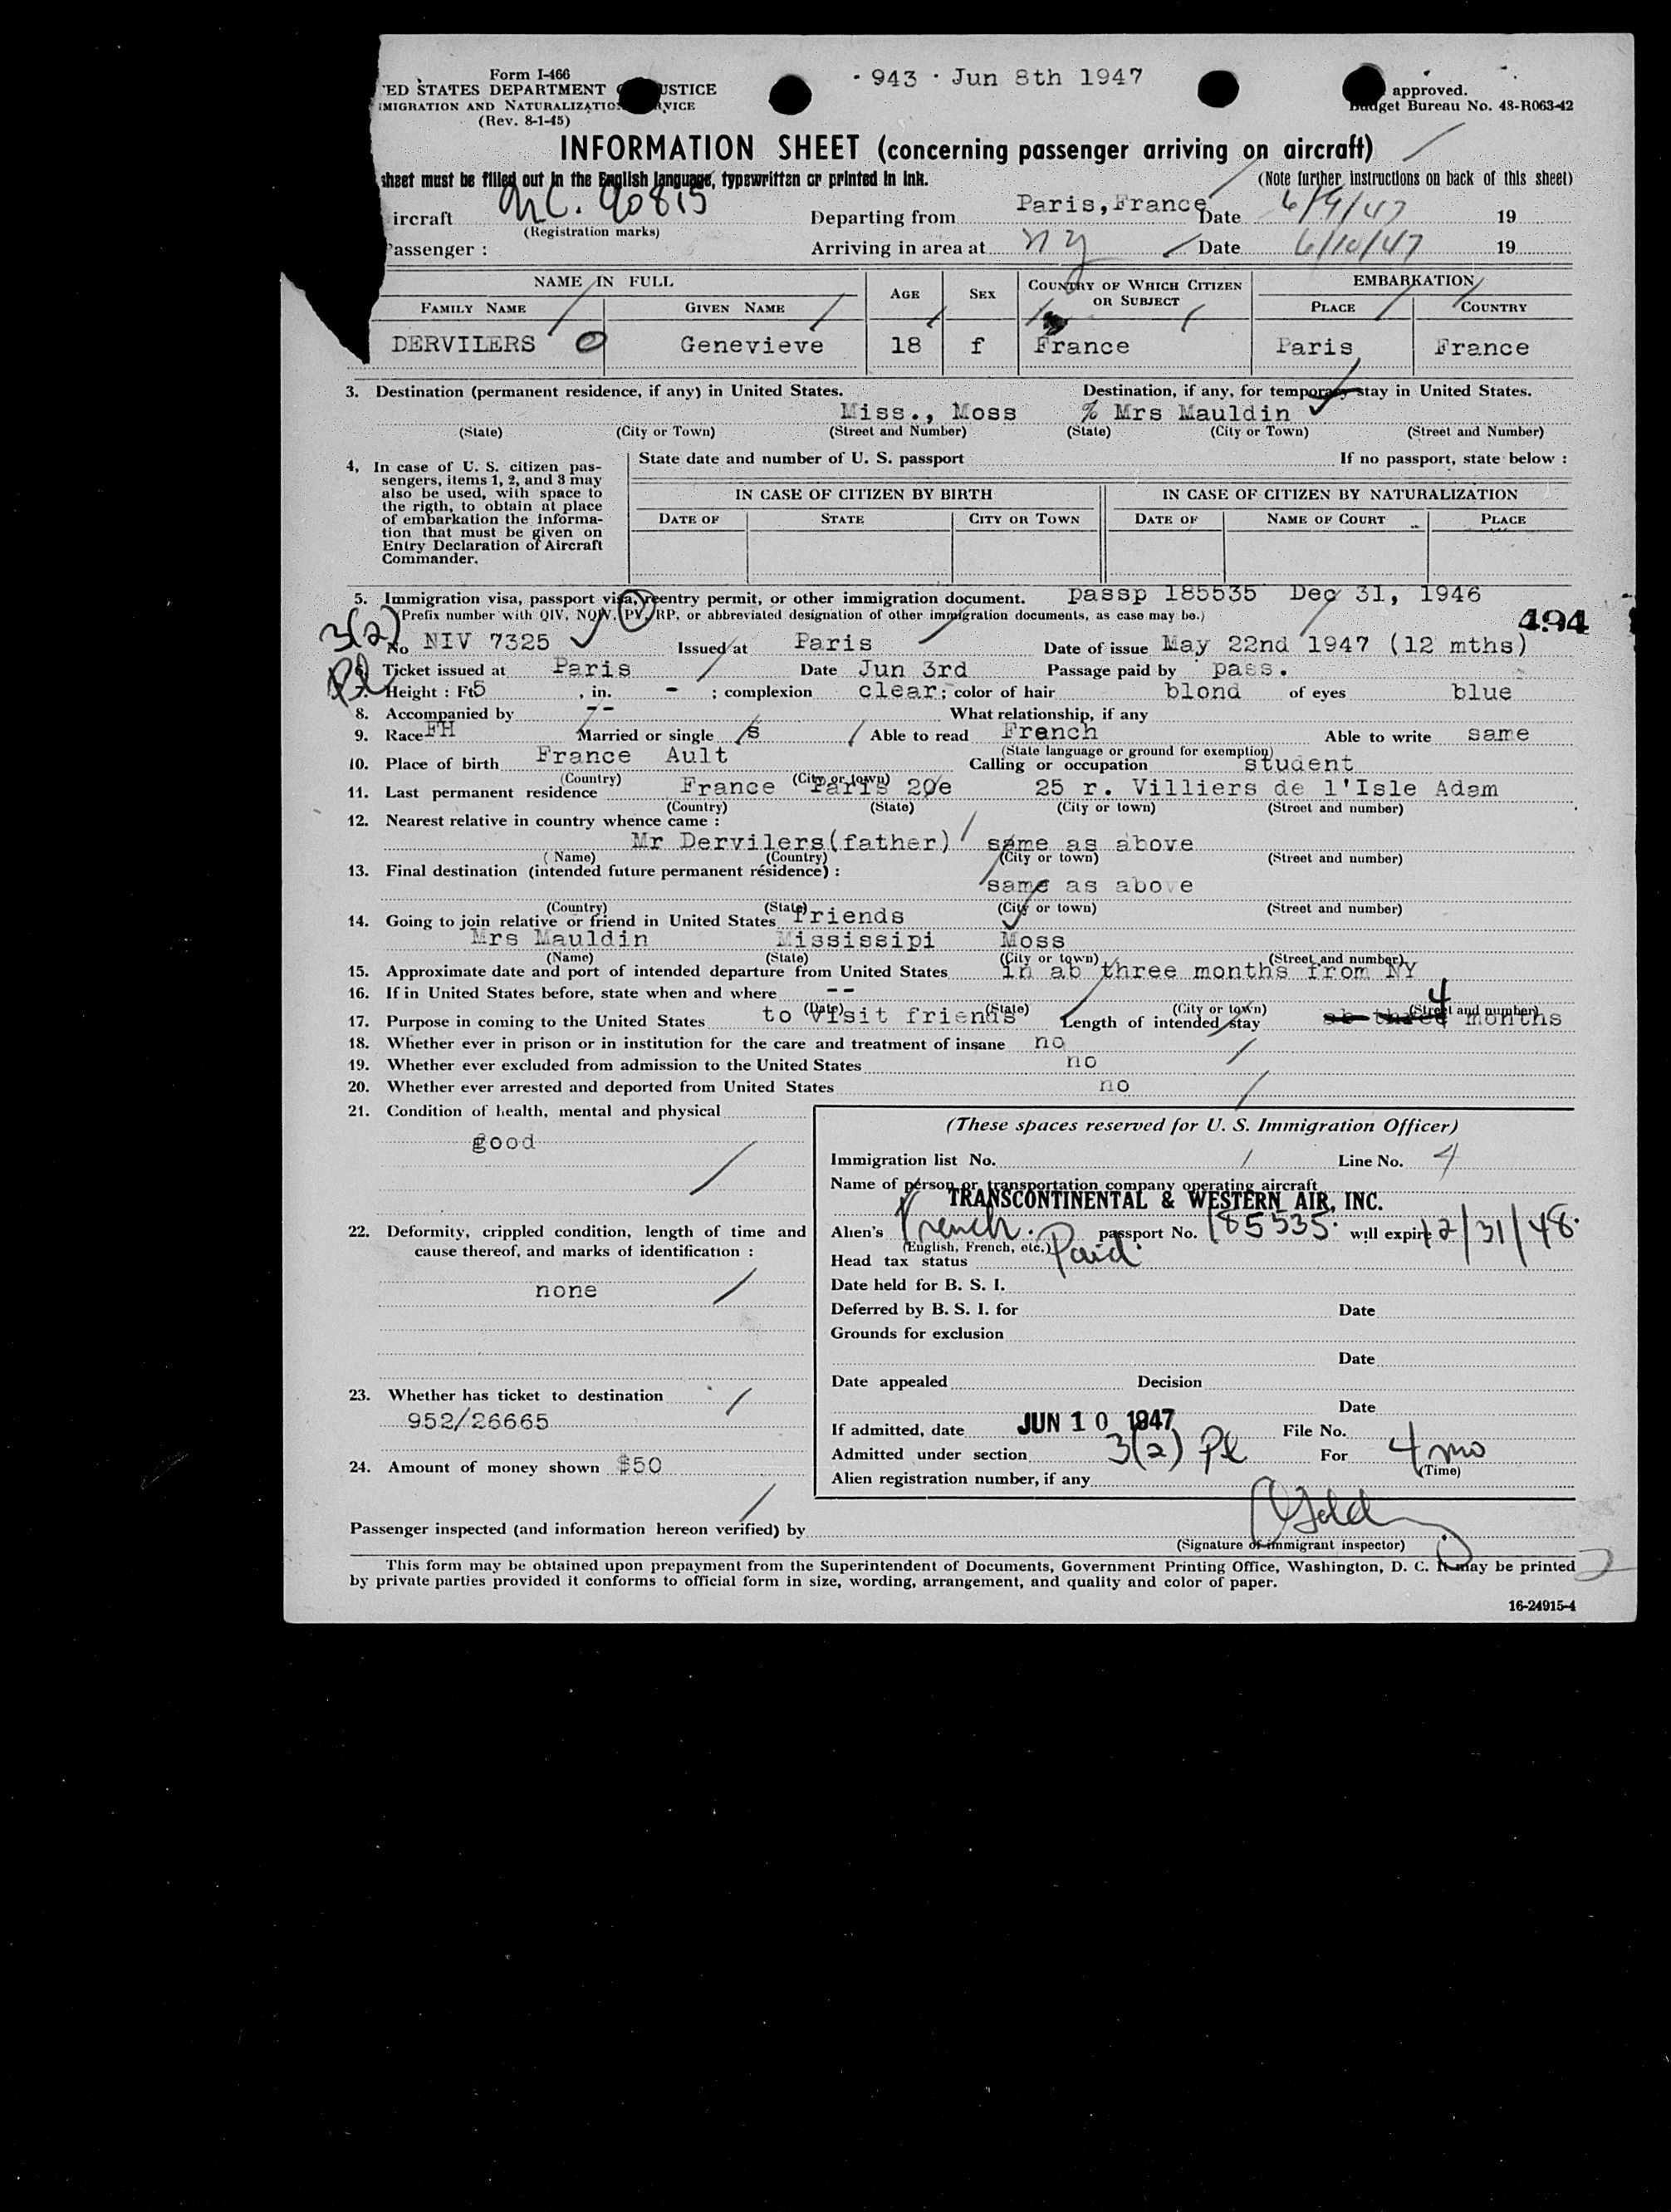 Form I-466
· 943 · Jun 8th 1947
'ED STATES DEPARTMENT USTICE
approved.
IMIGRATION AND NATURALIZATIO RVICE
Budget Bureau No. 48-R063-42
(Rev. 8-1-45)
INFORMATION SHEET (concerning passenger arriving on aircraft)
sheet must be filled out in the English language, typewritten or printed in ink.
(Note further instructions on back of this sheet)
ircraft NC. 90815 Departing from Paris, France Date 6/9/47 19
(Registration marks)
Passenger : Arriving in area at NY Date 6/10/47 19
NAME IN FULL AGE SEX COUNTRY OF WHICH CITIZEN OR SUBJECT EMBARKATION
FAMILY NAME GIVEN NAME PLACE COUNTRY
DERVILERS Genevieve 18 f France Paris France
3. Destination (permanent residence, if any) in United States. Destination, if any, for temporary stay in United States.
Miss., Moss % Mrs Mauldin
(State) (City or Town) (Street and Number) (State) (City or Town) (Street and Number)
4. In case of U. S. citizen passengers, items 1, 2, and 3 may also be used, with space to the rigth, to obtain at place of embarkation the information that must be given on Entry Declaration of Aircraft Commander.
State date and number of U. S. passport If no passport, state below :
IN CASE OF CITIZEN BY BIRTH IN CASE OF CITIZEN BY NATURALIZATION
DATE OF STATE CITY OR TOWN DATE OF NAME OF COURT PLACE
5. Immigration visa, passport visa, reentry permit, or other immigration document. passp 185535 Dec 31, 1946
(Prefix number with QIV, NQIV, PV, RP, or abbreviated designation of other immigration documents, as case may be.)
494
3(2)
No NIV 7325 Issued at Paris Date of issue May 22nd 1947 (12 mths)
Pl
Ticket issued at Paris Date Jun 3rd Passage paid by pass.
Height : Ft5 , in. - ; complexion clear; color of hair blond of eyes blue
8. Accompanied by -- What relationship, if any
9. Race FH Married or single s Able to read French Able to write same
(State language or ground for exemption)
10. Place of birth France Ault Calling or occupation student
(Country) (City or town)
11. Last permanent residence France Paris 20e 25 r. Villiers de l'Isle Adam
(Country) (State) (City or town) (Street and number)
12. Nearest relative in country whence came :
Mr Dervilers(father) same as above
(Name) (Country) (City or town) (Street and number)
13. Final destination (intended future permanent résidence) :
same as above
(Country) (State) (City or town) (Street and number)
14. Going to join relative or friend in United States friends
Mrs Mauldin Mississipi Moss
(Name) (State) (City or town) (Street and number)
15. Approximate date and port of intended departure from United States in ab three months from NY
16. If in United States before, state when and where --
(Date) (State) (City or town) (Street and number)
17. Purpose in coming to the United States to visit friends Length of intended stay ab three 4 months
18. Whether ever in prison or in institution for the care and treatment of insane no
19. Whether ever excluded from admission to the United States no
20. Whether ever arrested and deported from United States no
21. Condition of health, mental and physical
good
22. Deformity, crippled condition, length of time and cause thereof, and marks of identification :
none
23. Whether has ticket to destination
952/26665
24. Amount of money shown $50
(These spaces reserved for U. S. Immigration Officer)
Immigration list No. 1 Line No. 4
Name of person or transportation company operating aircraft
TRANSCONTINENTAL & WESTERN AIR, INC.
Alien's French. passport No. 185535. will expire 12/31/48.
(English, French, etc.)
Head tax status Paid.
Date held for B. S. I.
Deferred by B. S. I. for Date
Grounds for exclusion
Date
Date appealed Decision
Date
If admitted, date JUN 10 1947 File No.
Admitted under section 3(2) Pl For 4 mo
(Time)
Alien registration number, if any
Passenger inspected (and information hereon verified) by
(Signature of immigrant inspector)
This form may be obtained upon prepayment from the Superintendent of Documents, Government Printing Office, Washington, D. C. It may be printed
by private parties provided it conforms to official form in size, wording, arrangement, and quality and color of paper.
2
16-24915-4